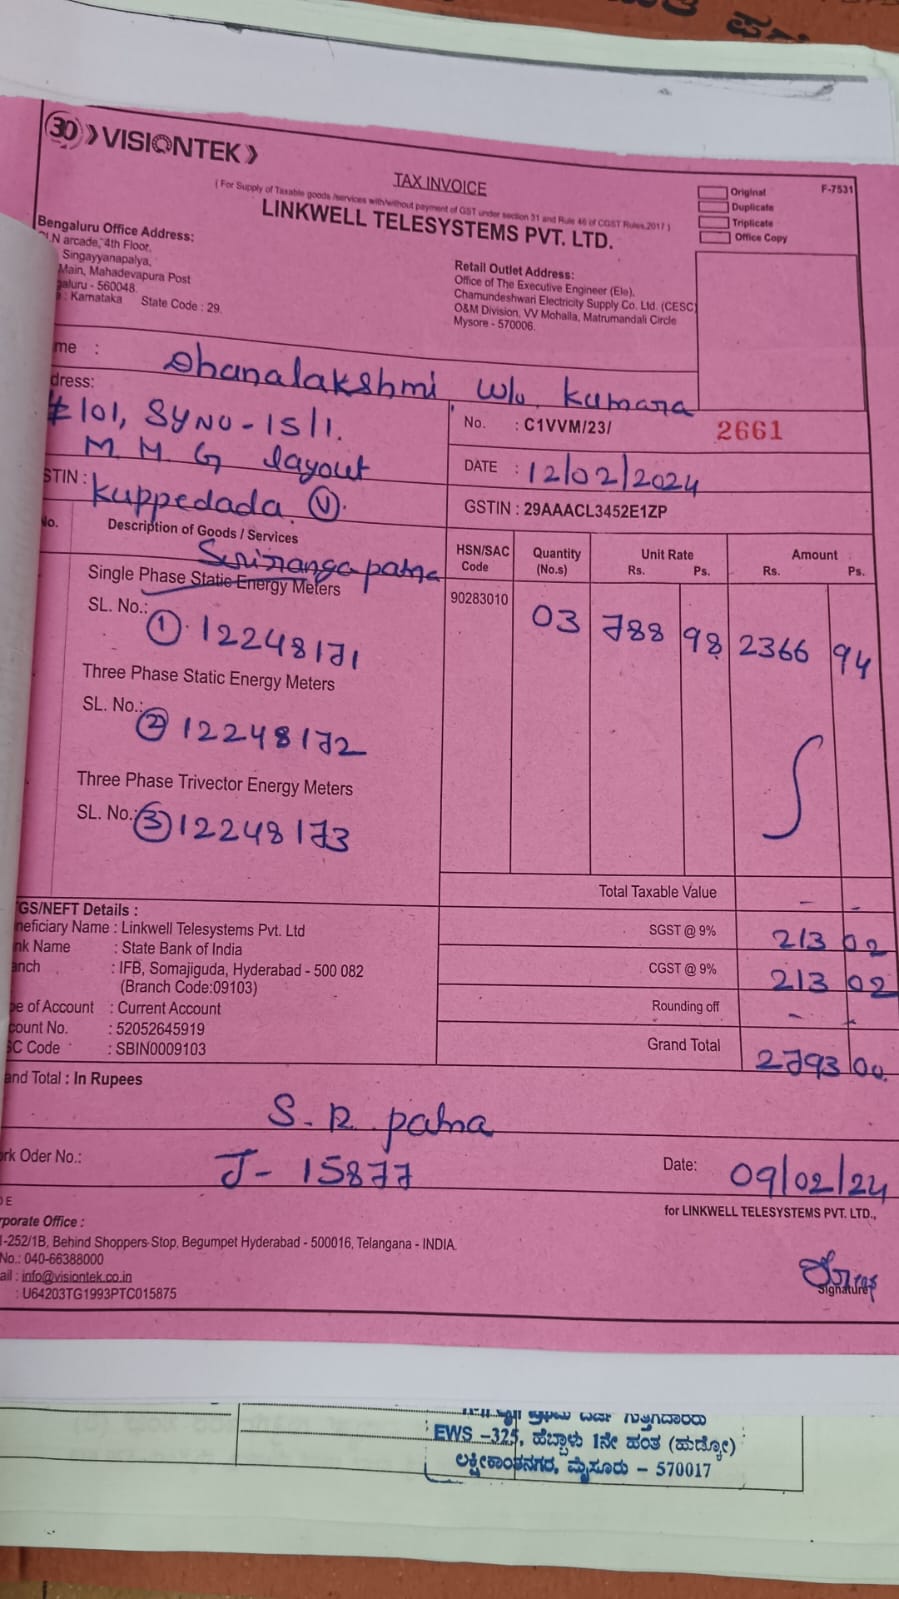 30 VISIONTEK
TAX INVOICE
( For Supply of Taxable goods /services with/without payment of GST under section 31 and Rule 46 of CGST Rules,2017 )
LINKWELL TELESYSTEMS PVT. LTD.
Original
Duplicate
Triplicate
Office Copy
F-7531
Bengaluru Office Address:
N arcade, 4th Floor,
Singayyanapalya,
Main, Mahadevapura Post
galuru - 560048.
: Karnataka State Code : 29.
Retail Outlet Address:
Office of The Executive Engineer (Ele),
Chamundeshwari Electricity Supply Co. Ltd. (CESC)
O&M Division, VV Mohalla, Matrumandali Circle
Mysore - 570006.
me : Dhanalakshmi w/o kumara
dress:
#101, SY NO - 15/1.
M. M. G layout
STIN : kuppedada (V).
Sriranga patna
No. : C1VVM/23/ 2661
DATE : 12/02/2024
GSTIN : 29AAACL3452E1ZP
No. Description of Goods / Services HSN/SAC Code Quantity (No.s) Unit Rate Rs. Ps. Amount Rs. Ps.
Single Phase Static Energy Meters 90283010 03 788 98 2366 94
SL. No.: 1. 12248171
Three Phase Static Energy Meters
SL. No.: 2 12248172
Three Phase Trivector Energy Meters
SL. No.: 3 12248173
Total Taxable Value - -
SGST @ 9% 213 02
CGST @ 9% 213 02
Rounding off - -
Grand Total 2793 00.
GS/NEFT Details :
neficiary Name : Linkwell Telesystems Pvt. Ltd
nk Name : State Bank of India
anch : IFB, Somajiguda, Hyderabad - 500 082
(Branch Code:09103)
pe of Account : Current Account
count No. : 52052645919
SC Code : SBIN0009103
and Total : In Rupees
S. R. patna
rk Oder No.: J- 15877
Date: 09/02/24
for LINKWELL TELESYSTEMS PVT. LTD.,
Signature
DE
rporate Office :
-252/1B, Behind Shoppers Stop, Begumpet Hyderabad - 500016, Telangana - INDIA.
No.: 040-66388000
ail : info@visiontek.co.in
: U64203TG1993PTC015875
ಪ್ರಥಮ ದರ್ಜೆ ಗುತ್ತಿಗೆದಾರರು
EWS -325, ಹೆಬ್ಬಾಳು 1ನೇ ಹಂತ (ಹುಡ್ಕೋ)
ಲಕ್ಷ್ಮೀಕಾಂತನಗರ, ಮೈಸೂರು - 570017